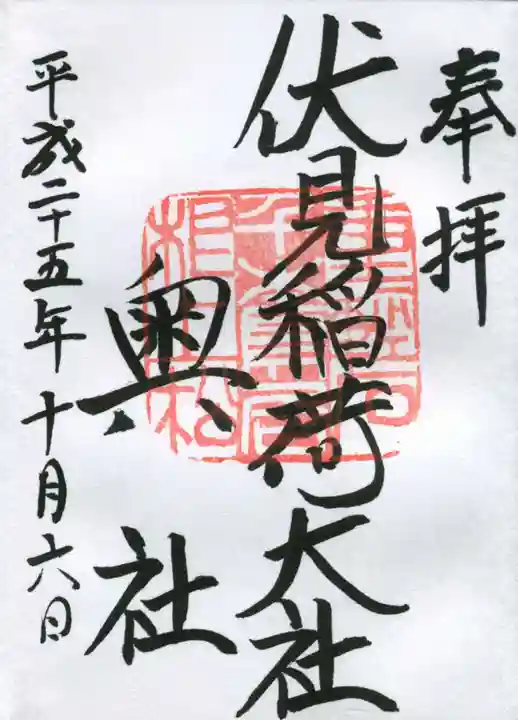 奉拝
伏見稲荷大社
奥社
平成二十五年十月六日